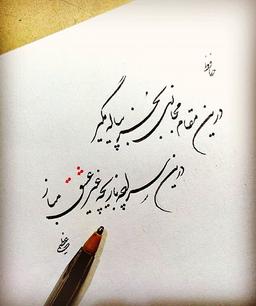 حافظ
درین مقام مجازی بجز پیاله مگیر
درین سراچه بازیچه غیر عشق مباز